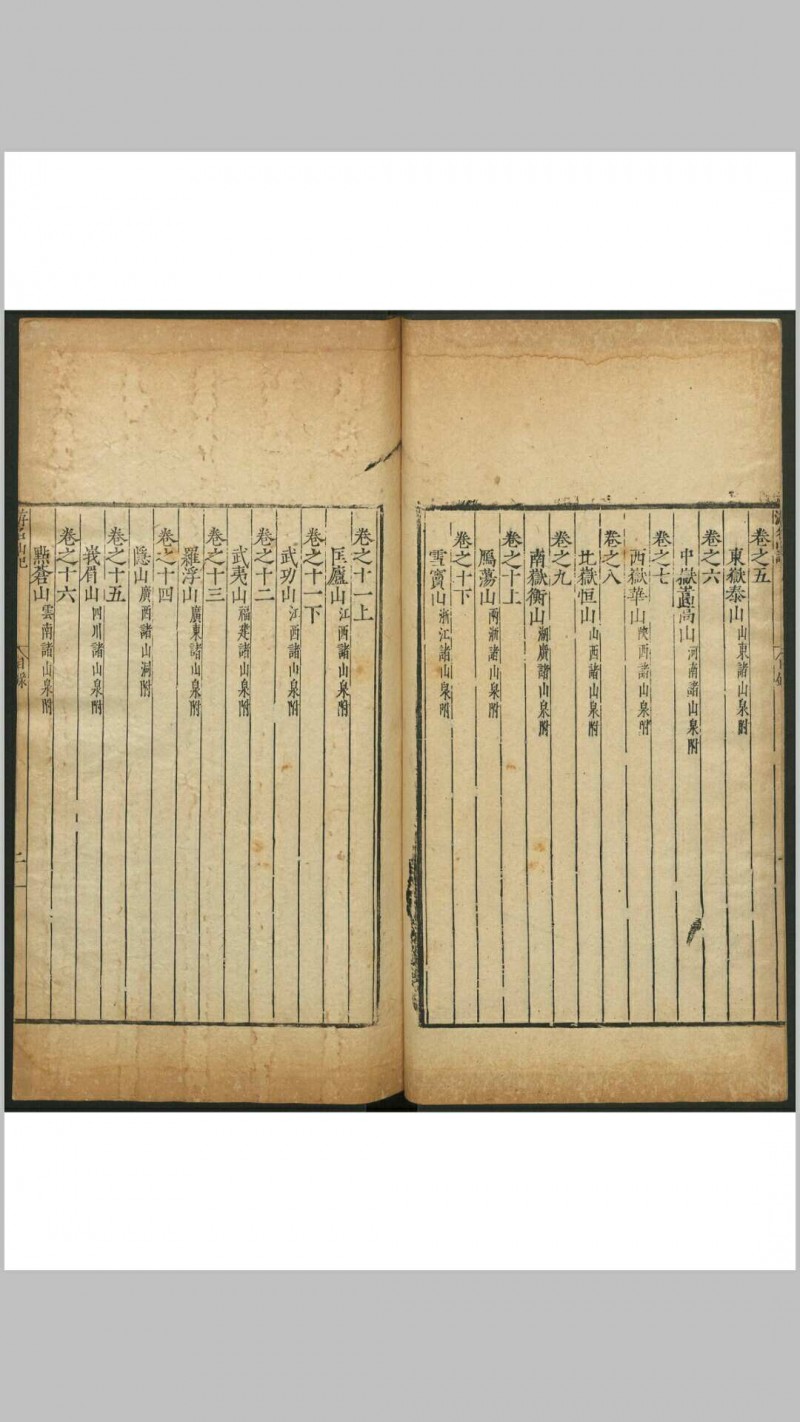 卷之五
東嶽泰山山東諸山泉附
卷之六
中嶽嵩高山河南諸山泉附
卷之七
西嶽華山陝西諸山泉附
卷之八
北嶽恒山山西諸山泉附
卷之九
南嶽衡山湖廣諸山泉附
卷之十上
鴈蕩山兩浙諸山泉附
卷之十下
雪竇山浙江諸山泉附
卷之十一上
匡廬山江西諸山泉附
卷之十一下
武功山江西諸山泉附
卷之十二
武夷山福建諸山泉附
卷之十三
羅浮山廣東諸山泉附
卷之十四
隱山廣西諸山洞附
卷之十五
峩眉山四川諸山泉附
卷之十六
㸃蒼山雲南諸山泉附
目錄
二